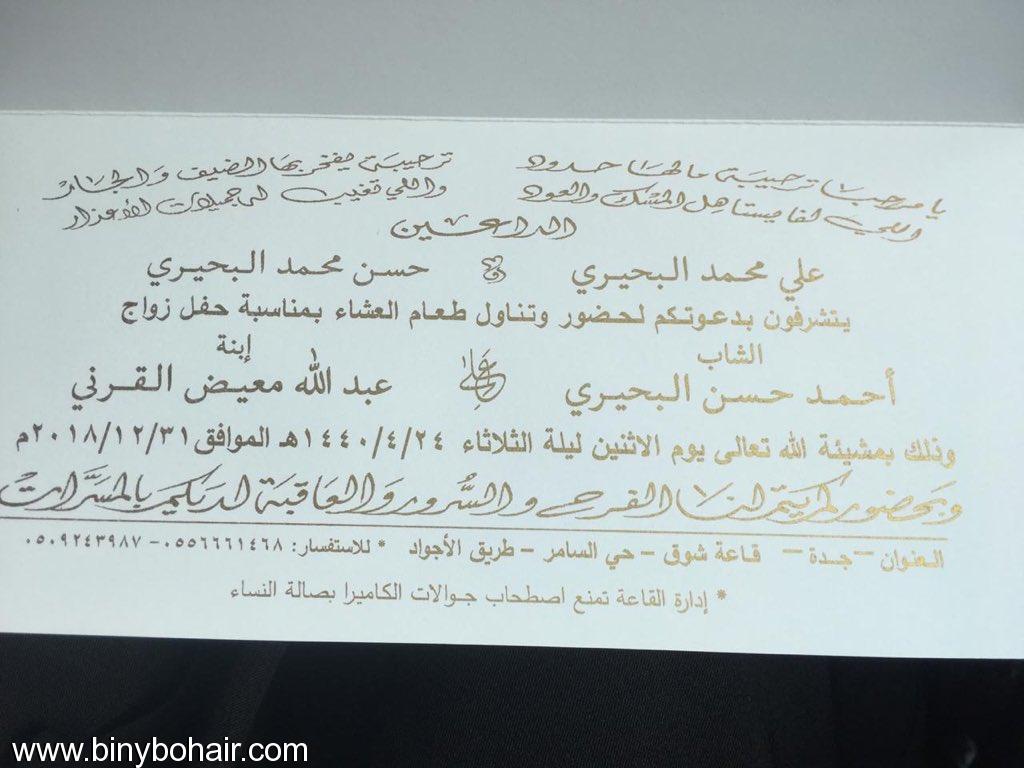 يا مرحبا ترحيبة ما لها حدود ترحيبة يفخر بها الضيف والجار
واللي لفا يستاهل المسك والعود واللي تغيب له جميلات الأعذار
الداعين
علي محمد البحيري حسن محمد البحيري
يتشرفون بدعوتكم لحضور وتناول طعام العشاء بمناسبة حفل زواج
الشاب إبنة
أحمد حسن البحيري على عبد الله معيض القرني
وذلك بمشيئة الله تعالى يوم الاثنين ليلة الثلاثاء ١٤٤٠/٤/٢٤هـ الموافق ٢٠١٨/١٢/٣١م
وبحضوركم يتم لنا الفرح والسرور والعاقبة لديكم بالمسرات
العنوان – جدة – قاعة شوق – حي السامر – طريق الأجواد * للاستفسار: ٠٥٥٦٦٦١٤٦٨ - ٠٥٠٩٢٤٣٩٨٧
* إدارة القاعة تمنع اصطحاب جوالات الكاميرا بصالة النساء
www.binybohair.com